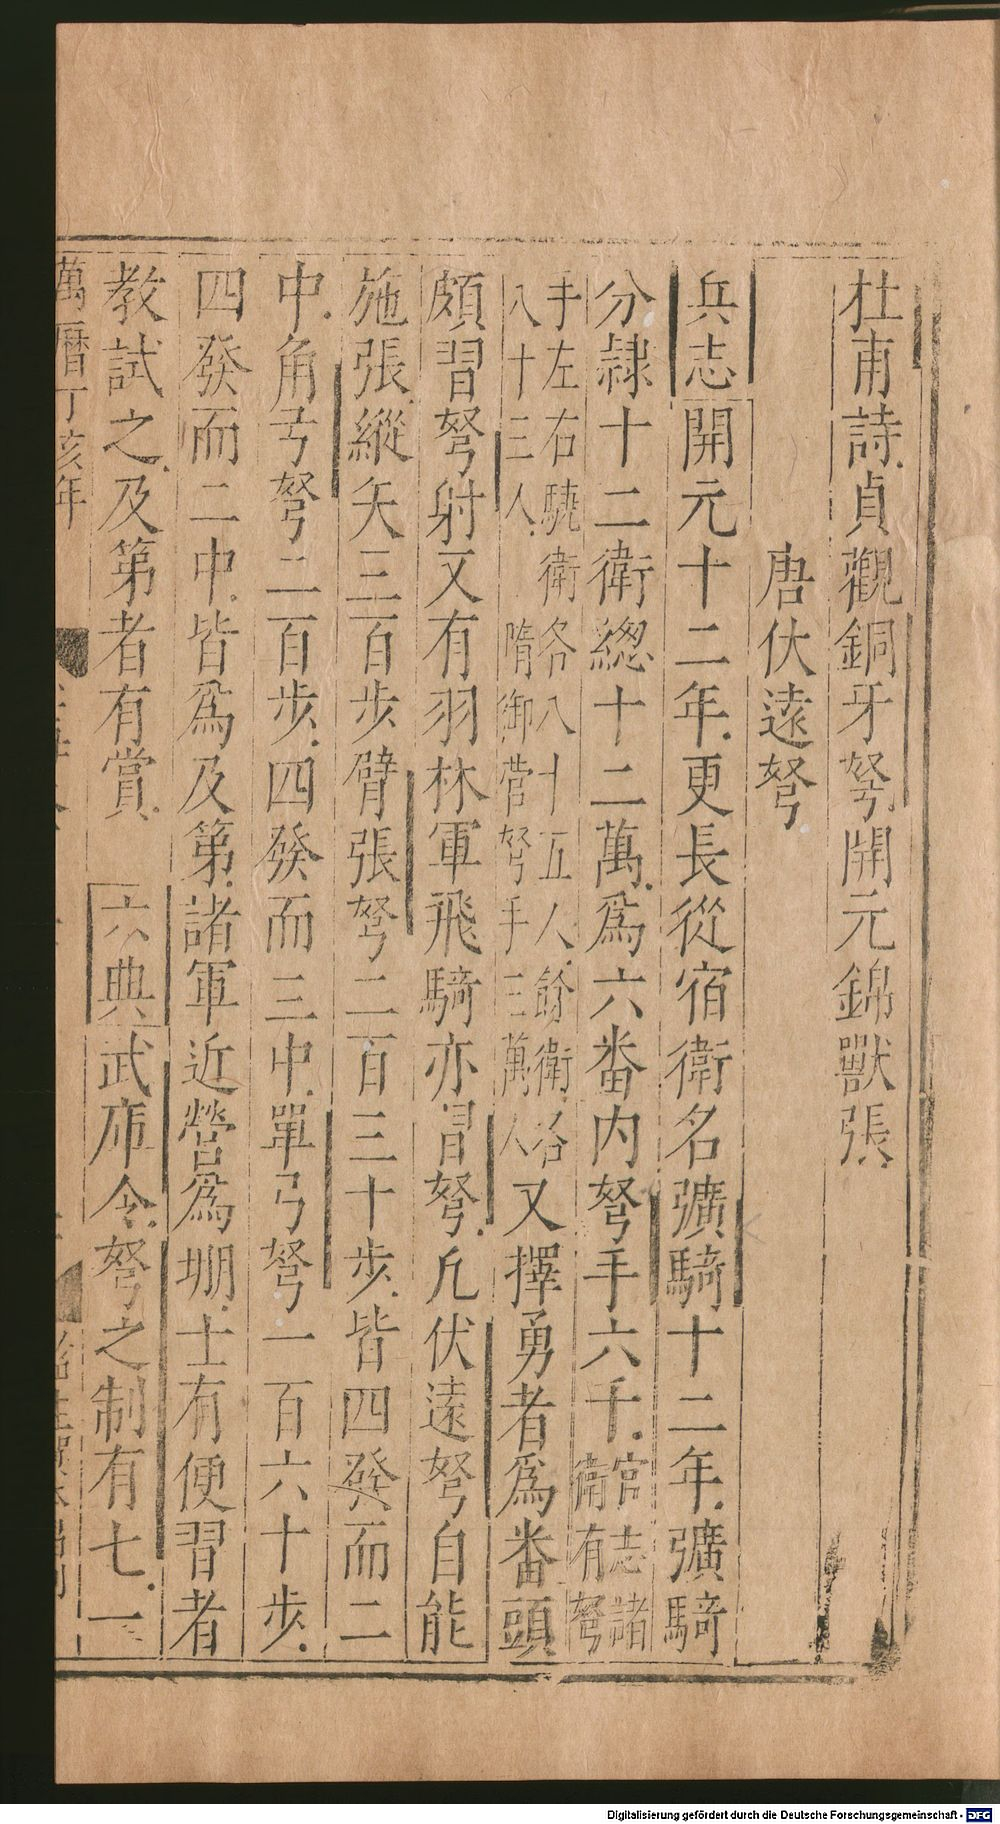 杜甫詩貞觀銅牙弩開元錦獸張
唐伏遠弩
兵志開元十二年更長從宿衛名彍騎十二年彍騎
分隸十二衛緫十二萬爲六番内弩手六千宫志諸
衛有弩
手左右驍衛各八十五人餘衛各
八十三人隋御營弩手三萬人又擇勇者爲番頭
頗習弩射又有羽林軍飛騎亦習弩凡伏遠弩自能
施張縱矢三百步臂張弩二百三十步皆四發而二
中角弓弩二百步四發而三中單弓弩一百六十步
四發而二中皆爲及第諸軍近營爲堋士有便習者
教試之及第者有賞 六典武庫令弩之制有七一
萬曆丁亥年
Digitalisierung gefördert durch die Deutsche Forschungsgemeinschaft - DFG